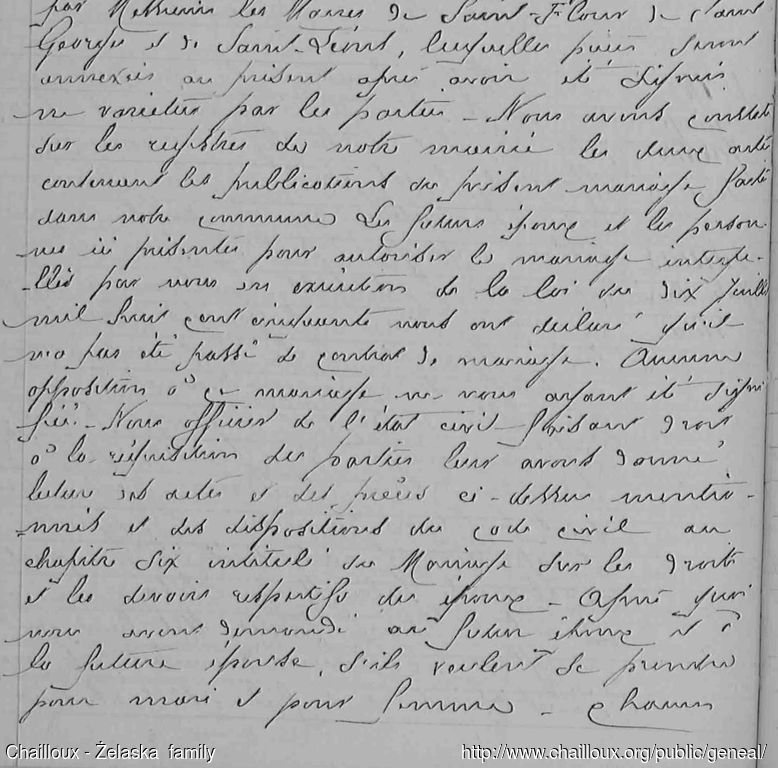 par Messieurs les Maires de Saint-Flour de Saint
Georges et de Saint-Léons, lesquelles pièces seront
annexées au présent après avoir été signées
ne varietur par les parties - Nous avons constaté
sur les registres de notre mairie les deux actes
contenant les publications du présent mariage faites
dans notre commune Les futurs époux et les person-
nes ici présentes pour autoriser le mariage interpe-
-llés par nous en exécution de la loi du dix Juillet
mil huit cent cinquante nous ont déclaré qu'il
n'a pas été passé de contrat de mariage. Aucune
opposition à ce mariage ne nous ayant été signi
fiée - Nous officier de l'état civil faisant droit
à la réquisition des parties leur avons donné
lecture des actes et des pièces ci-dessus mentio-
-nnés et des dispositions du code civil au
chapitre six intitulé du Mariage sur les droits
et les devoirs respectifs des époux - Après quoi
nous avons demandé au futur époux et à
la future épouse, s'ils veulent se prendre
pour mari et pour femme - chacun
Chailloux - Želaska family
http://www.chailloux.org/public/geneal/